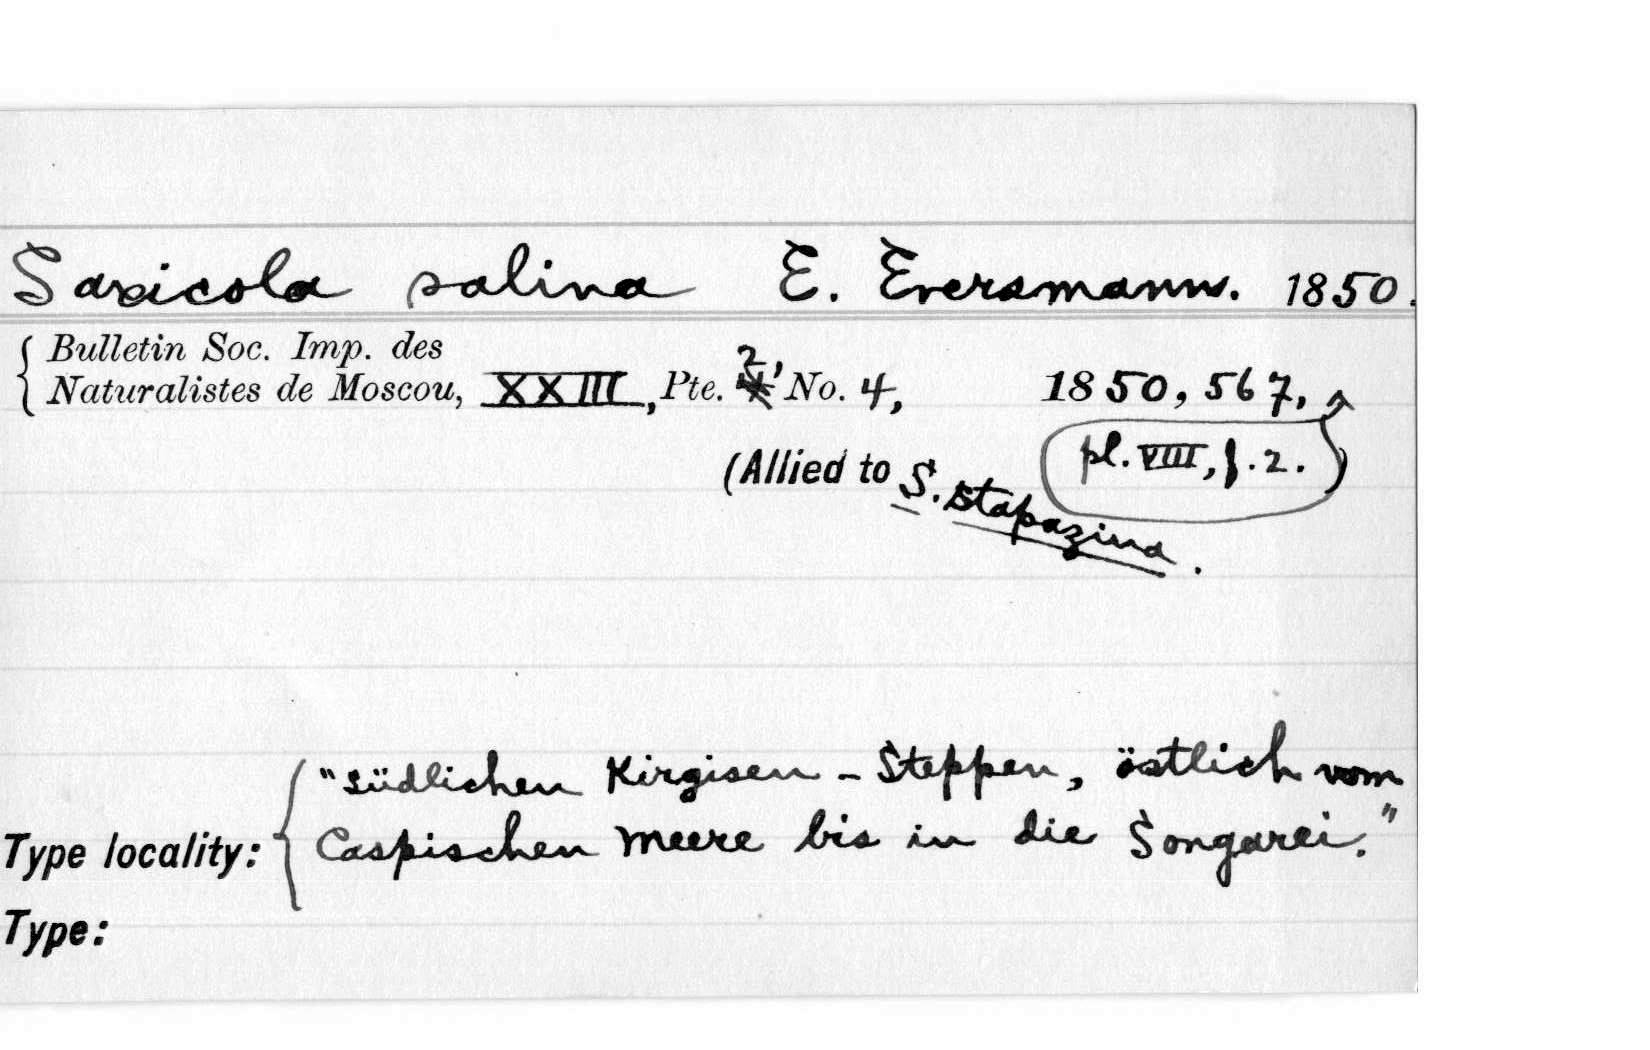 Saxicola salina E. Eversmann. 1850.
Bulletin Soc. Imp. des
Naturalistes de Moscou, XXIII, Pte. 2, No. 4, 1850, 567,
pl. VIII, f. 2.
(Allied to S. stapazina.)
"südlichen Kirgisen-Steppen, östlich vom
Type locality: Caspischen Meere bis in die Songarei."
Type: